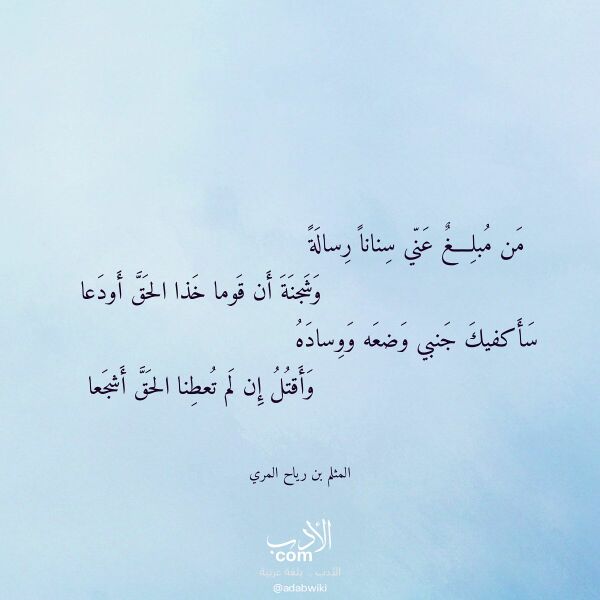 مَن مُبلِــغٌ عَنّي سِناناً رِسالَةً
وَشَجنَةَ أَن قَوما خَذا الحَقَّ أَودَعا
سَأَكفيكَ جَنبي وَضعَه وَوِسادَهُ
وَأَقتُلُ إِن لَم تُعطِنا الحَقَّ أَشجَعا
المثلم بن رياح المري
الأدب
com
الأدب .. بلغة عربية
@adabwiki